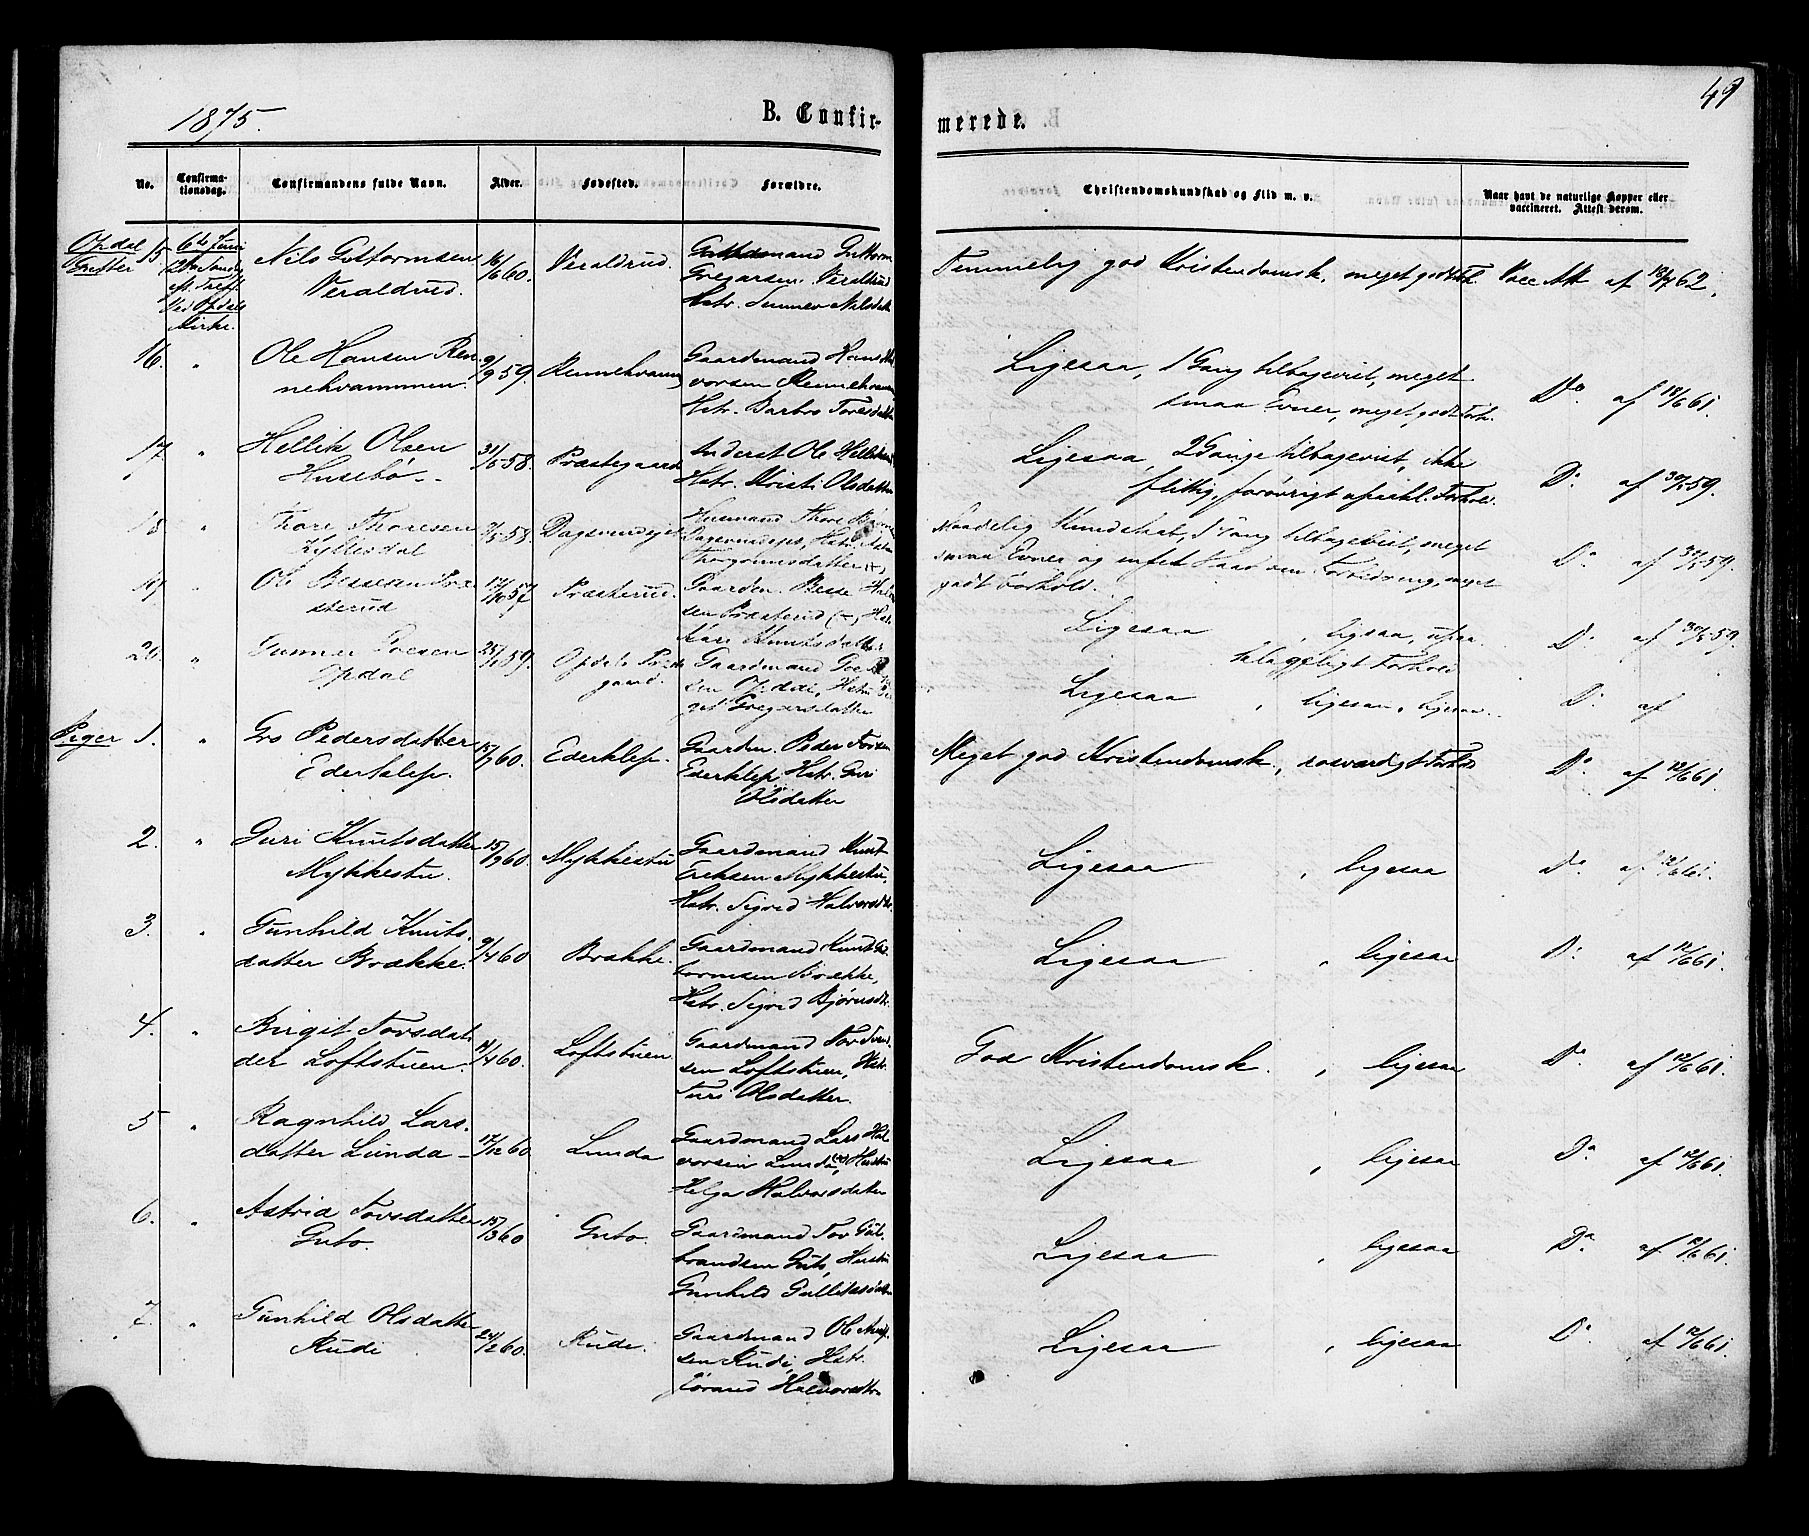 1875.
B. Confir-
merede.
49
No.
Confirma-
tionsdag.
Confirmandens fulde Navn.
Alder.
Fødested.
Forældre.
Christendomskundskab og Flid m. v.
Naar havt de naturlige Kopper eller
vaccineret. Attest derom.
Opdal
15
6te Juni
Ved Opdals
Kirke.
Nils Guttormsen
Veraldrud.
16/6 60.
Veraldrud.
Guttorm
Gregarsen Veraldrud
Hstr. Gunnor Nilsdatt
Temmelig god Kristendomsk, meget godt Forh.
Vacc Att af 18/7 62.
16.
"
Ole Hansen Ren-
nehvammen.
9/9 59.
Rennehvamm
Gaardmand Hans Hal
vorsen Rennehvam
Hstr. Barbro Toresdatter
Ligesaa, 1 Gang tilbagevist, meget
smaa Evner, meget godt Forh.
Do. af 18/6 61.
17.
"
Hellik Olsen
Husebø -
31/5 58.
Præstegaard
Inderst Ole Helliksen
Hstr. Kristi Olsdatter
Ligesaa, 2 Gange tilbagevist, ikke
flittig, forøvrigt upaakl. Forhold.
Do. af 30/5 59.
18
"
Thore Thoresen
Kyllesdal
58.
Dagsvendejet
Husmand Thore
Thorgrimsdatter (+)
Naadelig Kundskab, 1 Gang tilbagevist, meget
smaa Evner og
godt Forhold.
Do af 30/5 59.
19
"
Ole Bessesen Præ-
sterud
17/10 57
Præsterud.
Gaarden. Besse Halvor
sen Præsterud (+), Hst
Kari Knutsdatter
Ligesaa , ligsaa, upaa
klageligt Forhold
Do. af 30/5 59.
20.
"
Gunner
Opdal
59.
Opdals Præste
gaard.
Gaardmand
sen Opdal, Hstr
git Gregarsdatter
Ligesaa , ligesaa, ligesaa.
Do. af
Piger
1.
"
Gro Pedersdatter
Ederklep.
15/7 60.
Ederklep.
Gaardm. Peder Torsen
Ederklep Hstr. Guri
Olsdatter
Meget god Kristendomsk., rosværdigt Forhold
Do. af 12/6 61.
2.
"
Guri Knutsdatter
Mykkestu.
15/9 60.
Mykkestu
Gaardmand Knut
Eriksen Mykkestu,
Hstr. Sigrid Halvorsdtr.
Ligesaa , ligesaa
Do. af 12/6 61.
3.
"
Gunhild Knuts-
datter Brække.
9/4 60
Brække.
Gaardmand Knut Gut
tormsen Brække,
Hstr. Sigrid Bjørnsdtr.
Ligesaa , ligesaa
Do. af 12/6 61.
4.
"
Birgit Torsdat-
der Loftstuen.
14/4 60.
Loftstuen
Gaardmand Tov Sven
sen Loftstuen, Hstr
Turi Olsdatter.
God Kristendomsk. , ligesaa
Do. af 12/6 61.
5
"
Ragnhild Lars-
datter Lunda -
17/12 60
Lunda
Gaardmand Lars Hal
vorsen Lunda, (+) Hustru
Helga Halvorsdatter
Ligesaa , ligesaa
Do. af 12/6 61.
6.
"
Astrid Tovsdatter
Guto.
15/3 60
Guto.
Gaardmand Tov Gul
brandsen Guto, Hustru
Gunhild Gulliksdatter
Ligesaa , ligesaa
Do. af 12/6 61.
7.
"
Gunhild Olsdatter
Rudi
24/2 60.
Rudi.
Gaardmand Ole
sen Rudi, Hstr.
Jørand Halvorsdtr.
Ligesaa , ligesaa
Do. af 12/6 61.